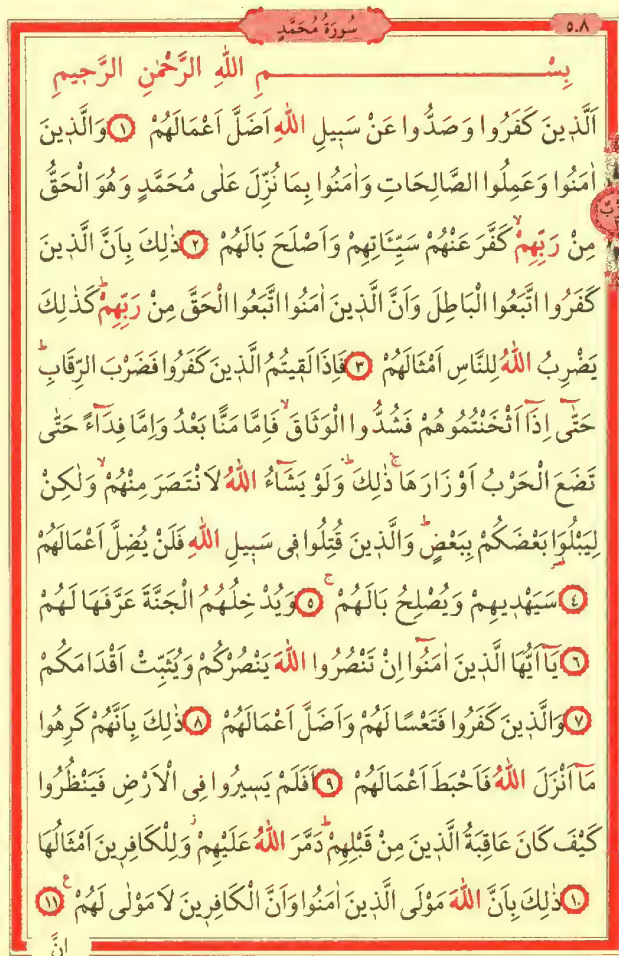 ٥٠٨ سُورَةُ مُحَمَّدٍ
بِسْمِ اللهِ الرَّحْمٰنِ الرَّحِيمِ
اَلَّذِينَ كَفَرُوا وَصَدُّوا عَنْ سَبِيلِ اللهِ اَضَلَّ اَعْمَالَهُمْ ١ وَالَّذِينَ
اٰمَنُوا وَعَمِلُوا الصَّالِحَاتِ وَاٰمَنُوا بِمَا نُزِّلَ عَلٰى مُحَمَّدٍ وَهُوَ الْحَقُّ
مِنْ رَبِّهِمْۙ كَفَّرَ عَنْهُمْ سَيِّـَٔاتِهِمْ وَاَصْلَحَ بَالَهُمْ ٢ ذٰلِكَ بِاَنَّ الَّذِينَ
كَفَرُوا اتَّبَعُوا الْبَاطِلَ وَاَنَّ الَّذِينَ اٰمَنُوا اتَّبَعُوا الْحَقَّ مِنْ رَبِّهِمْۜ كَذٰلِكَ
يَضْرِبُ اللهُ لِلنَّاسِ اَمْثَالَهُمْ ٣ فَاِذَا لَقِيتُمُ الَّذِينَ كَفَرُوا فَضَرْبَ الرِّقَابِۜ
حَتّٰٓى اِذَٓا اَثْخَنْتُمُوهُمْ فَشُدُّوا الْوَثَاقَۙ فَاِمَّا مَنًّا بَعْدُ وَاِمَّا فِدَٓاءً حَتّٰى
تَضَعَ الْحَرْبُ اَوْزَارَهَاۚ ذٰلِكَۜ وَلَوْ يَشَٓاءُ اللهُ لَانْتَصَرَ مِنْهُمْۙ وَلٰكِنْ
لِيَبْلُوَ۬ا بَعْضَكُمْ بِبَعْضٍۜ وَالَّذِينَ قُتِلُوا فِى سَبِيلِ اللهِ فَلَنْ يُضِلَّ اَعْمَالَهُمْ
٤ سَيَهْدِيهِمْ وَيُصْلِحُ بَالَهُمْۚ ٥ وَيُدْخِلُهُمُ الْجَنَّةَ عَرَّفَهَا لَهُمْ
٦ يَٓا اَيُّهَا الَّذِينَ اٰمَنُٓوا اِنْ تَنْصُرُوا اللهَ يَنْصُرْكُمْ وَيُثَبِّتْ اَقْدَامَكُمْ
٧ وَالَّذِينَ كَفَرُوا فَتَعْسًا لَهُمْ وَاَضَلَّ اَعْمَالَهُمْ ٨ ذٰلِكَ بِاَنَّهُمْ كَرِهُوا
مَٓا اَنْزَلَ اللهُ فَاَحْبَطَ اَعْمَالَهُمْ ٩ اَفَلَمْ يَسِيرُوا فِى الْاَرْضِ فَيَنْظُرُوا
كَيْفَ كَانَ عَاقِبَةُ الَّذِينَ مِنْ قَبْلِهِمْۜ دَمَّرَ اللهُ عَلَيْهِمْۘ وَلِلْكَافِرِينَ اَمْثَالُهَا
١٠ ذٰلِكَ بِاَنَّ اللهَ مَوْلَى الَّذِينَ اٰمَنُوا وَاَنَّ الْكَافِرِينَ لَا مَوْلٰى لَهُمْ ١١
انَّ